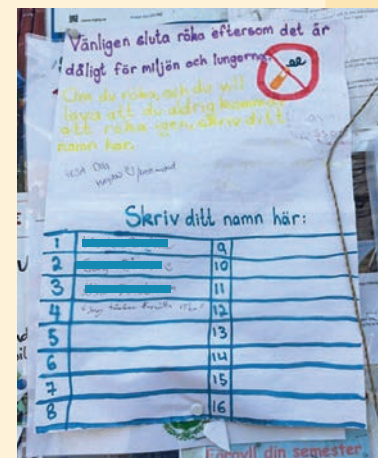 Vänligen sluta röka eftersom det är
dåligt för miljön och lungorna.
Om du röka, och du vill
lova att du aldrig kommer
att röka igen, skriv ditt
namn här.
Skriv ditt namn här:
1 9
2 10
3 11
4 12
5 13
6 14
7 15
8 16
Förgyll din semester